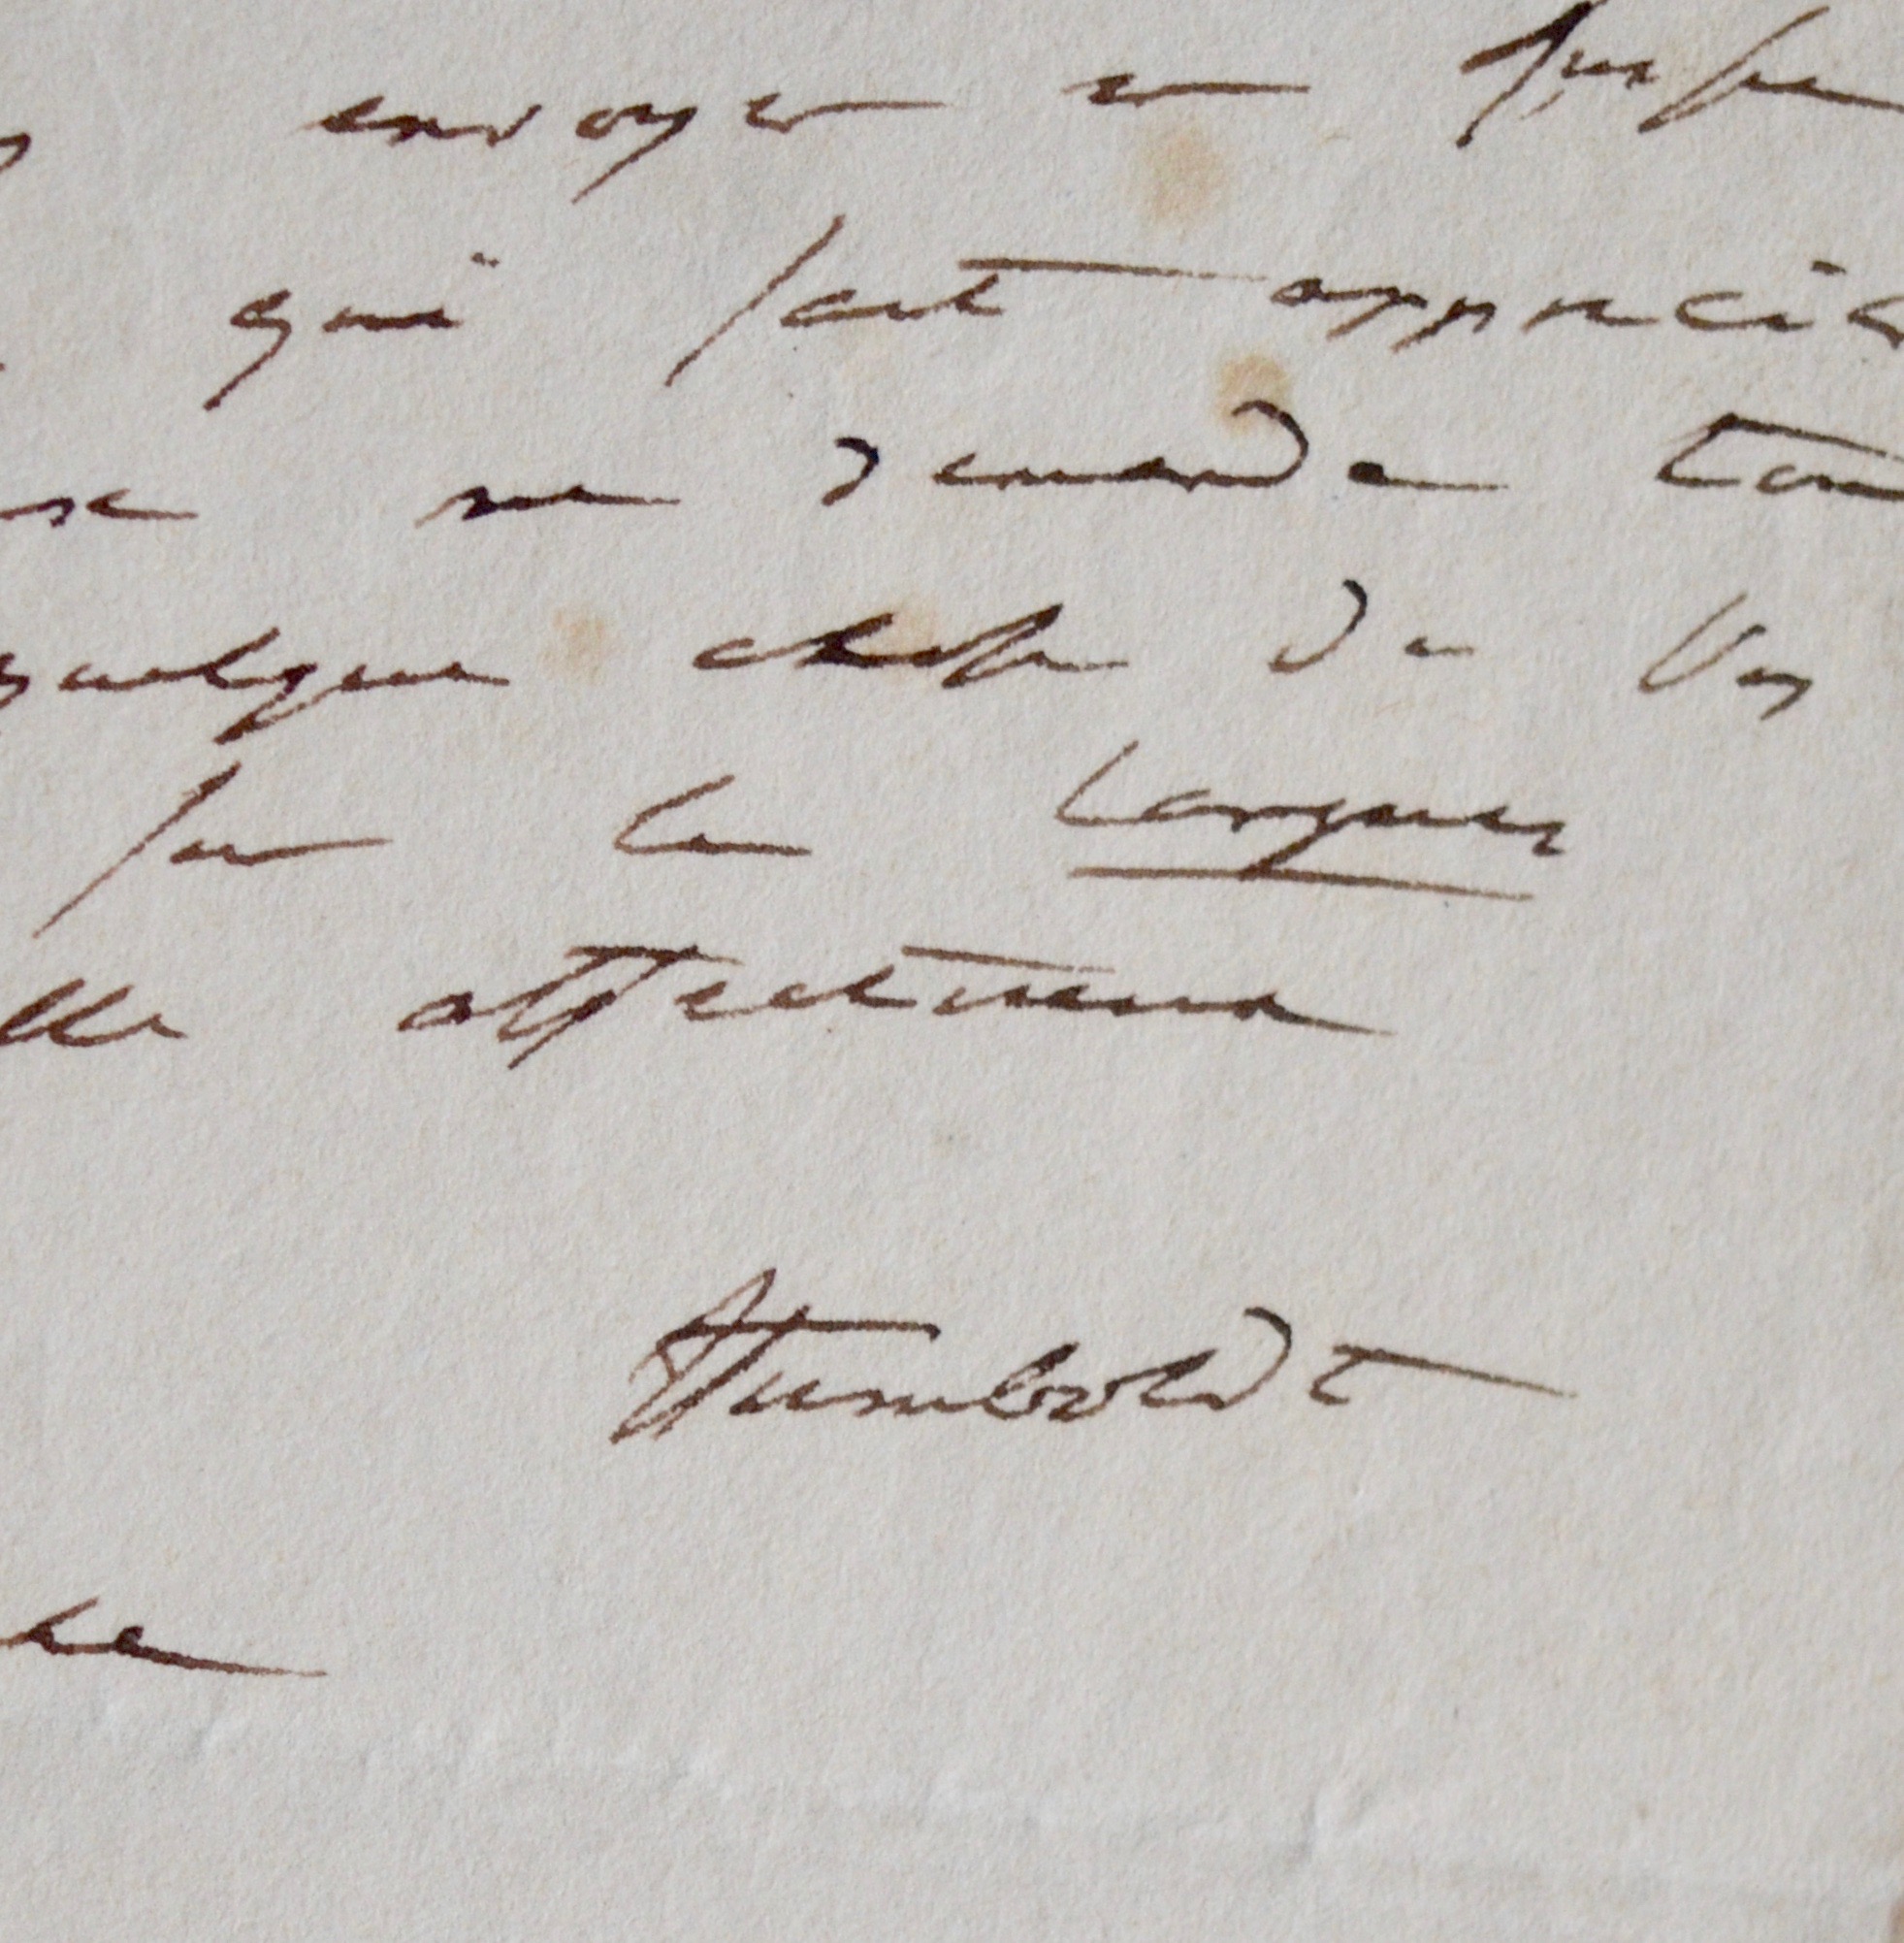 envoyer en
qui sait apprécie
me demande tou
quelque chose de Vos
sur les langues
lle affectueux
Humboldt